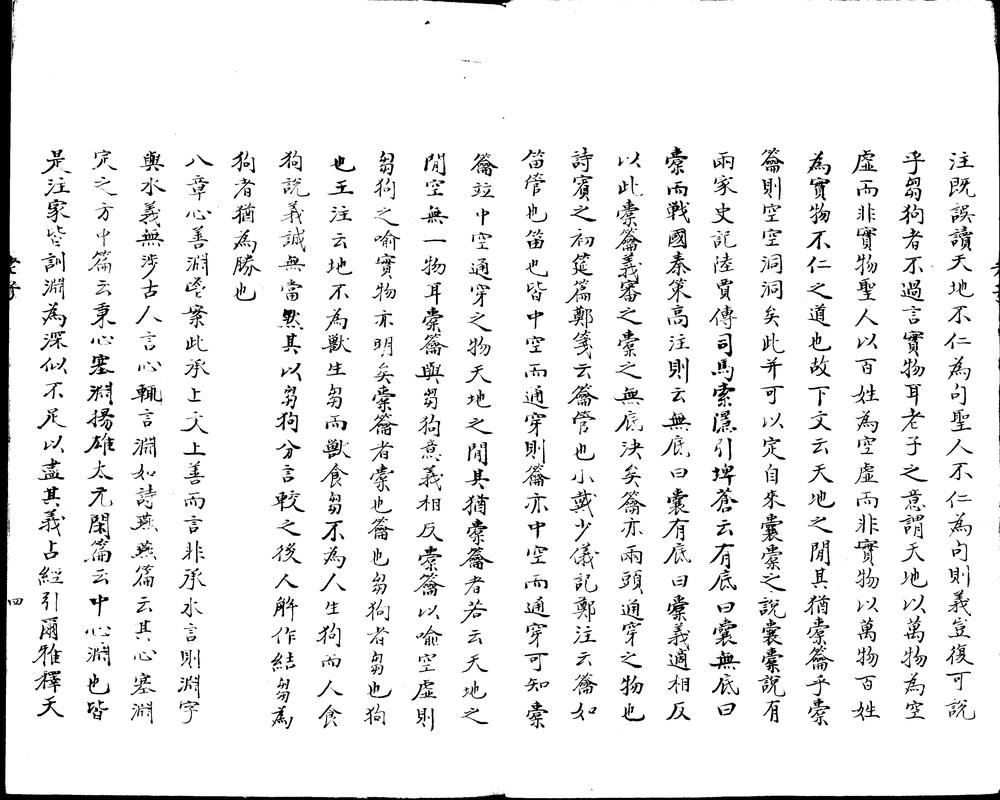 注既誤讀天地不仁為句聖人不仁為句則義豈復可說
乎芻狗者不過言實物耳老子之意謂天地以萬物為空
虛而非實物聖人以百姓為空虛而非實物以萬物百姓
為實物不仁之道也故下文云天地之閒其猶橐籥乎橐
籥則空空洞洞矣此并可以定自來囊橐之說囊橐說有
兩家史記陸賈傳司馬索隱引埤蒼云有底曰囊無底曰
橐而戰國秦策高注則云無底曰囊有底曰橐義適相反
以此橐籥義審之橐之無底決矣籥亦兩頭通穿之物也
詩賓之初筵篇鄭箋云籥管也小戴少儀記鄭注云籥如
笛管也笛也皆中空而通穿則籥亦中空而通穿可知橐
籥竝中空通穿之物天地之閒其猶橐籥者若云天地之
閒空無一物耳橐籥與芻狗意義相反橐籥以喻空虛則
芻狗之喻實物亦明矣橐籥者橐也籥也芻狗者芻也狗
也王注云地不為獸生芻而獸食芻不為人生狗而人食
狗說義誠無當然其以芻狗分言較之後人解作結芻為
狗者猶為勝也
八章心善淵巠案此承上文上善而言非承水言則淵字
與水義無涉古人言心輒言淵如詩燕燕篇云其心塞淵
定之方中篇云秉心塞淵揚雄太元閑篇云中心淵也皆
是注家皆訓淵為深似不足以盡其義占經引爾雅釋天
四